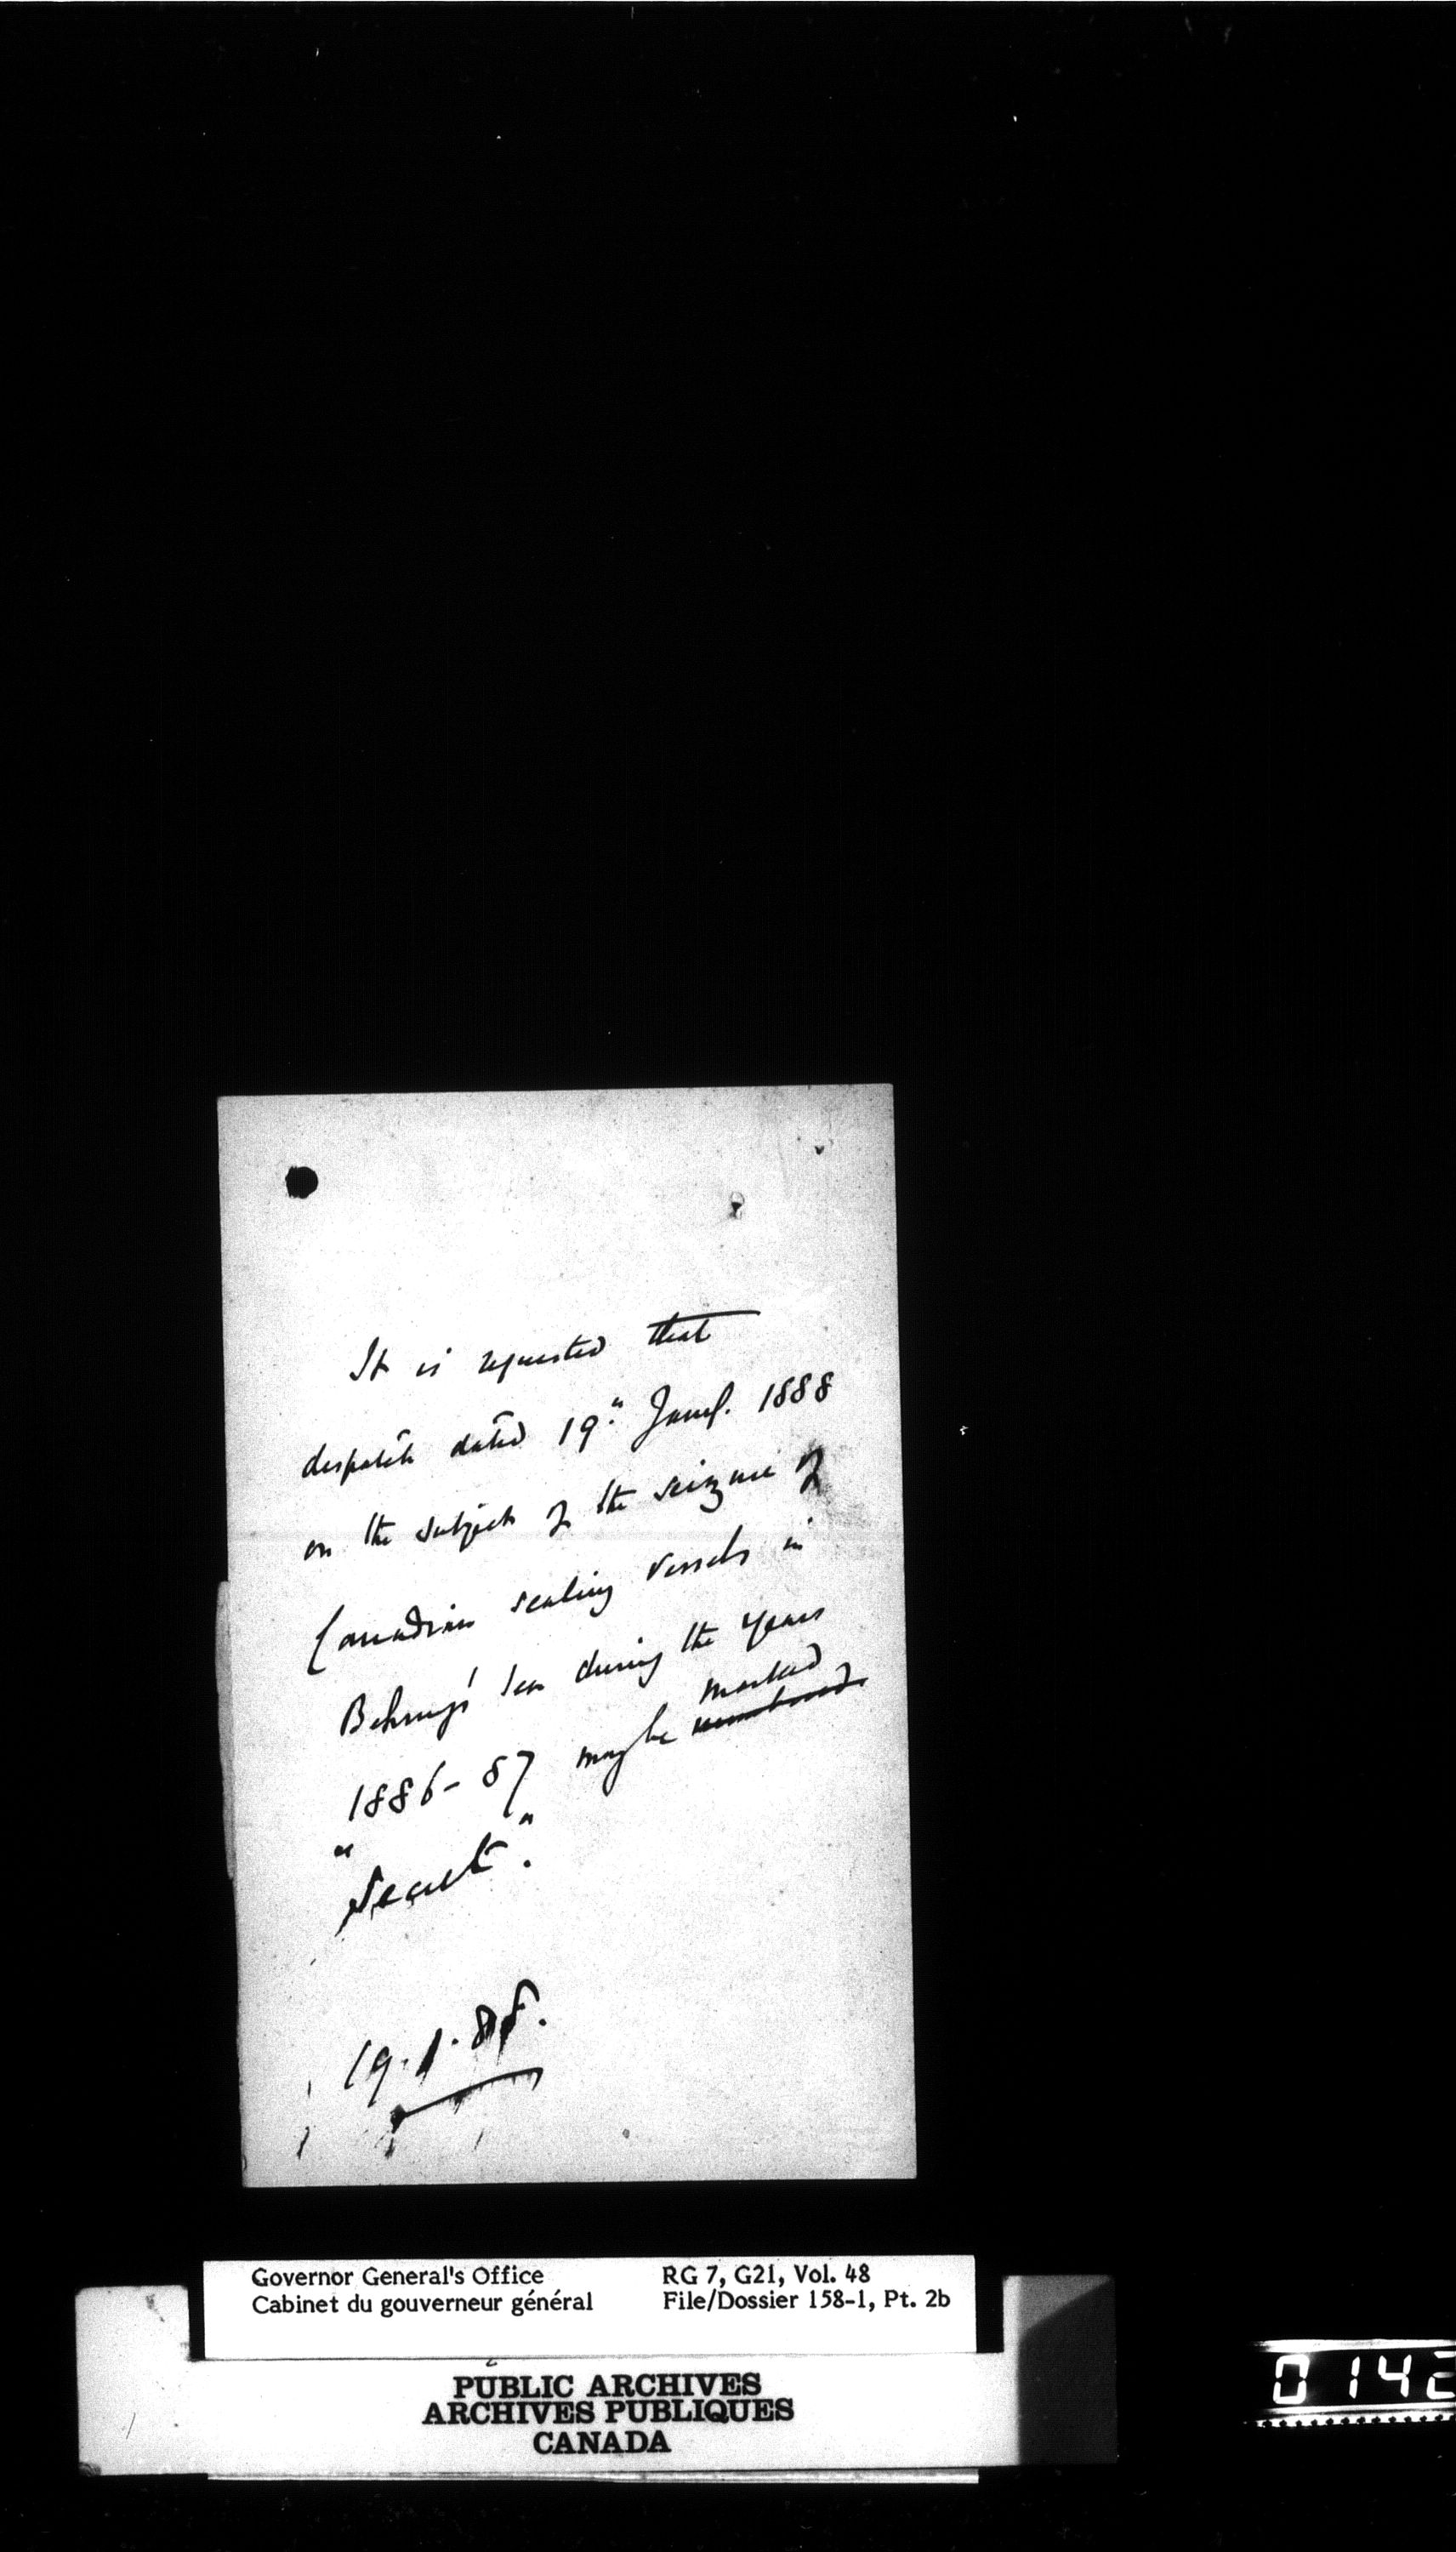 It is requested that
despatch dated 19th Jany. 1888
on the subject of the seizure of
Canadian sealing vessels in
Behring's Sea during the years
marked
1886-87 may be numbered
"Secret".
19.1.88.
Governor General's Office
Cabinet du gouverneur général
RG 7, G21, Vol. 48
File/Dossier 158-1, Pt. 2b
PUBLIC ARCHIVES
ARCHIVES PUBLIQUES
CANADA
0142